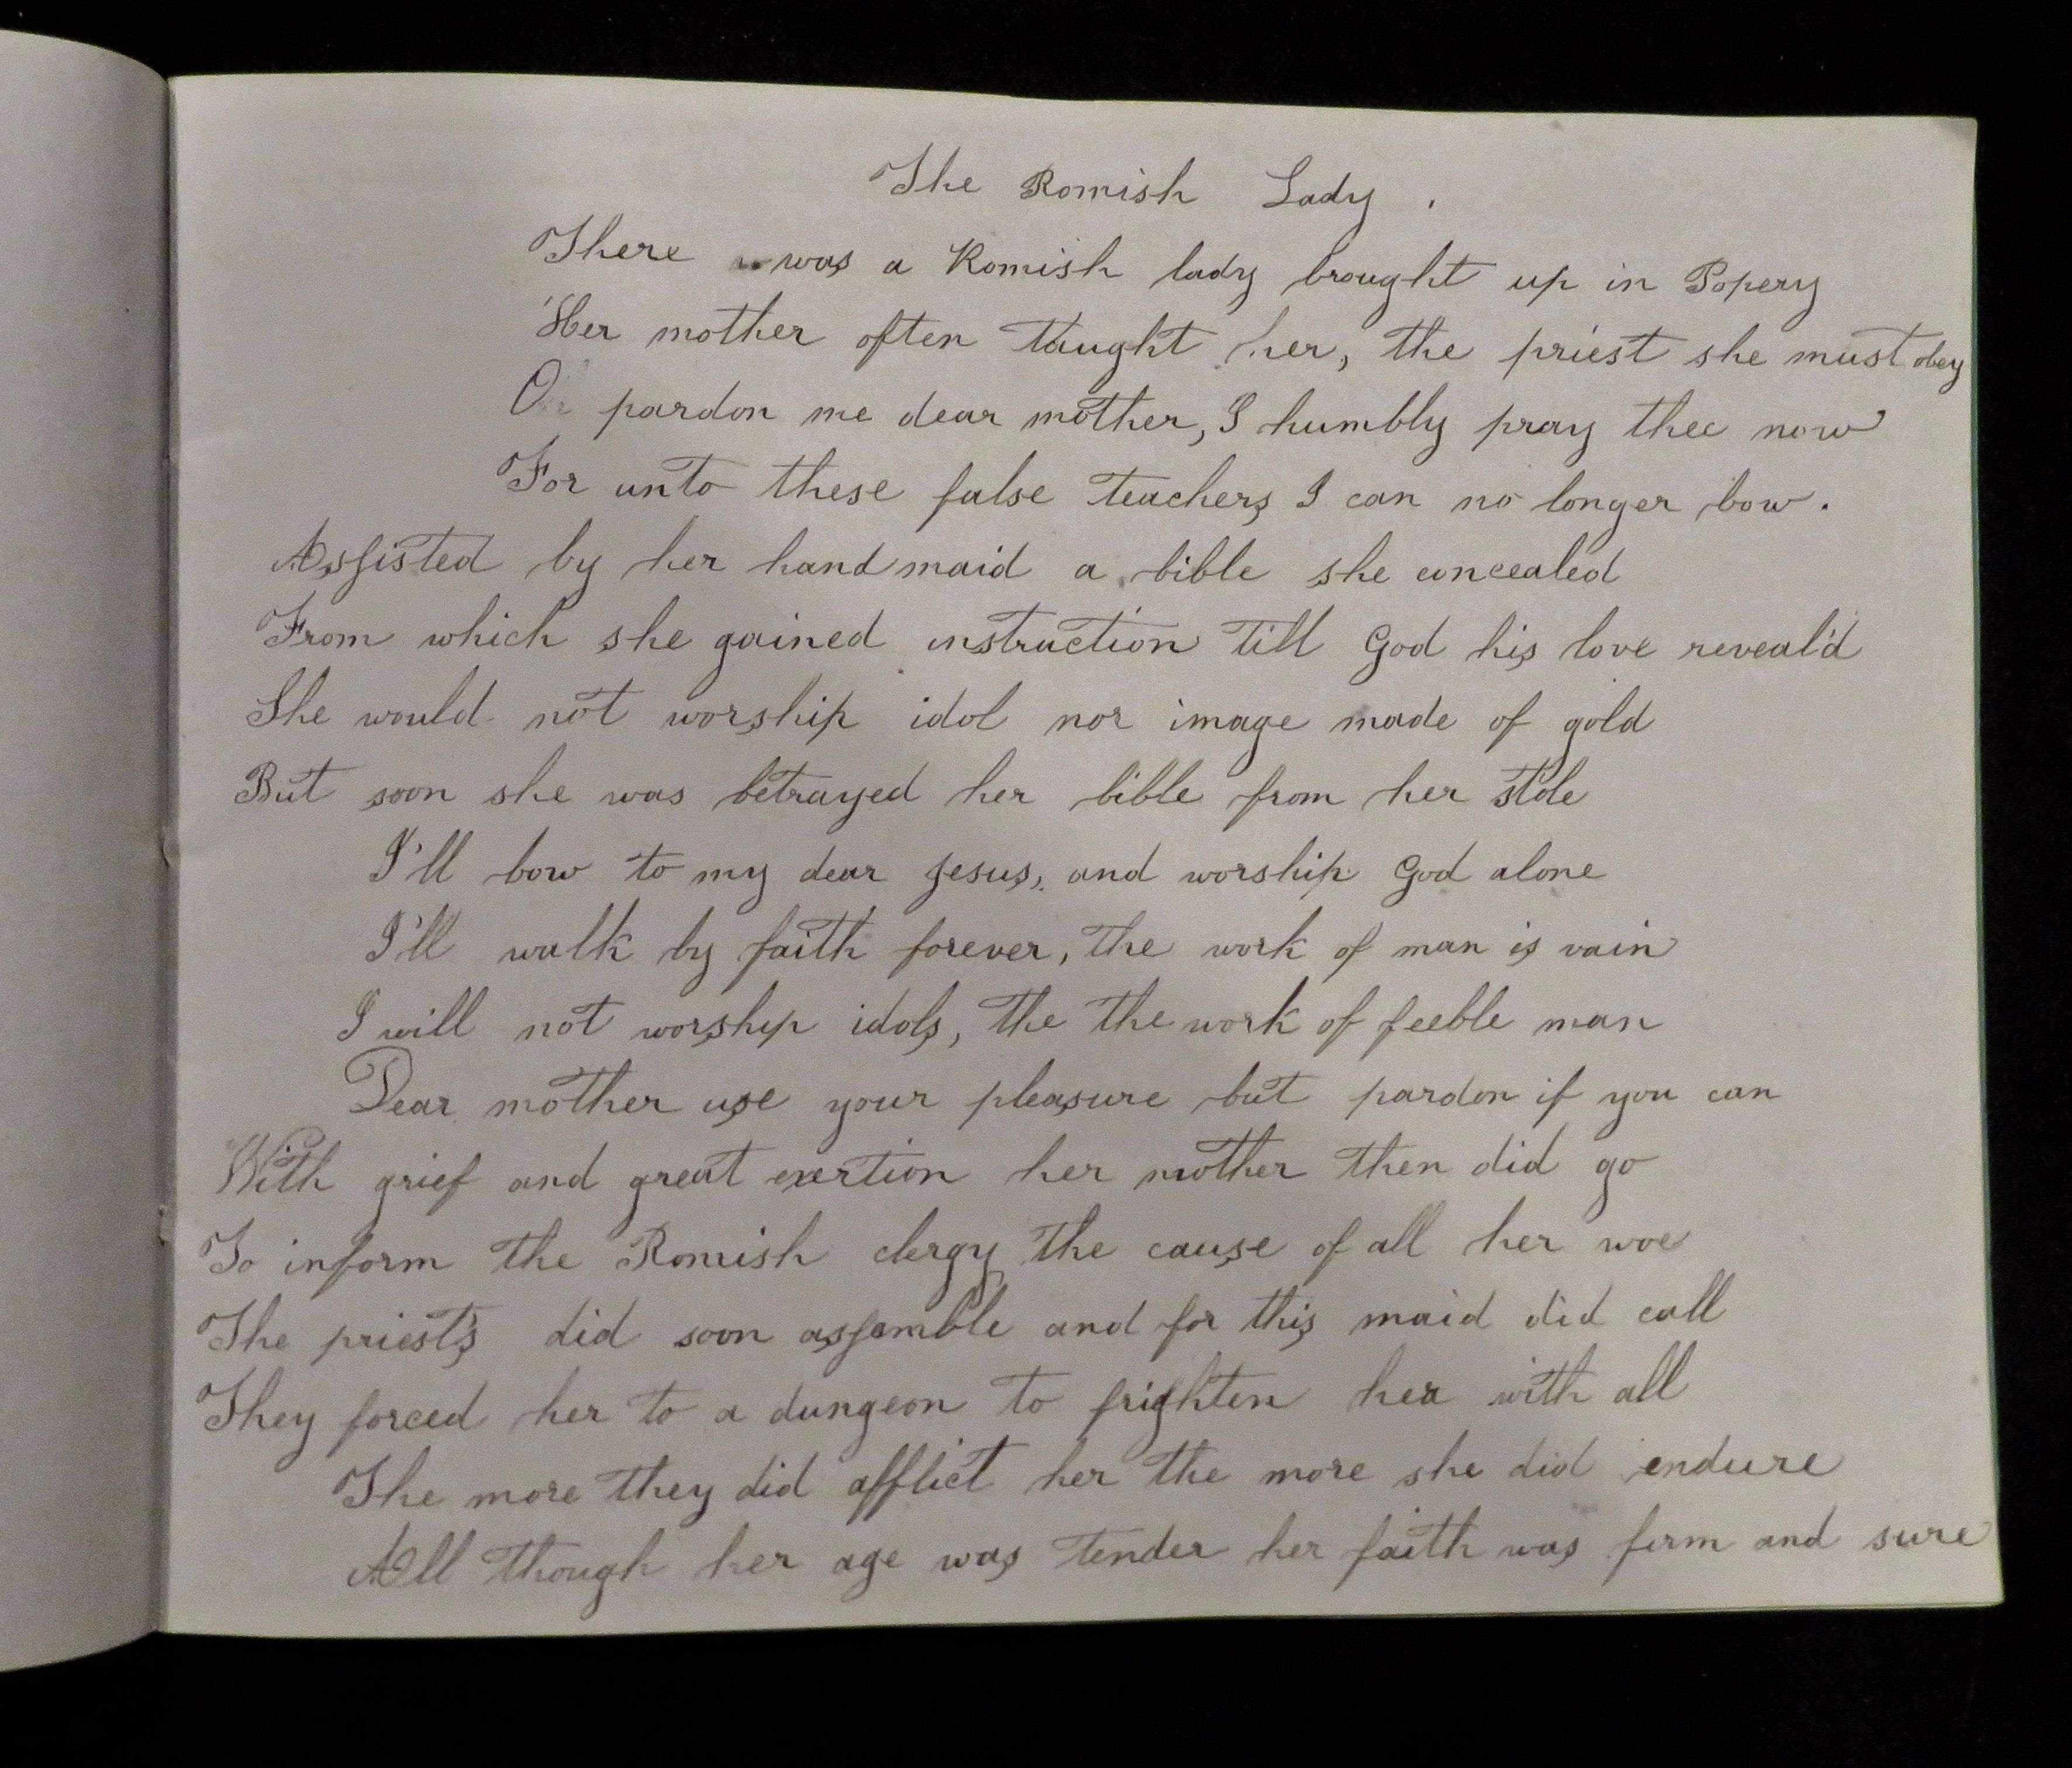 The Romish Lady.
There was a Romish lady brought up in Popery
Her mother often taught her, the priest she must obey
Oh pardon me dear mother, I humbly pray thee now
For unto these false teachers I can no longer bow.
Assisted by her handmaid a bible she concealed
From which she gained instruction till God his love reveal'd
She would not worship idol nor image made of gold
But soon she was betrayed her bible from her stole
I'll bow to my dear Jesus, and worship God alone
I'll walk by faith forever, the work of man is vain
I will not worship idols, the the work of feeble man
Dear mother use your pleasure but pardon if you can
With grief and great exertion her mother then did go
To inform the Romish clergy the cause of all her woe
The priests did soon assemble and for this maid did call
They forced her to a dungeon to frighten her with all
The more they did afflict her the more she did endure
All though her age was tender her faith was firm and sure